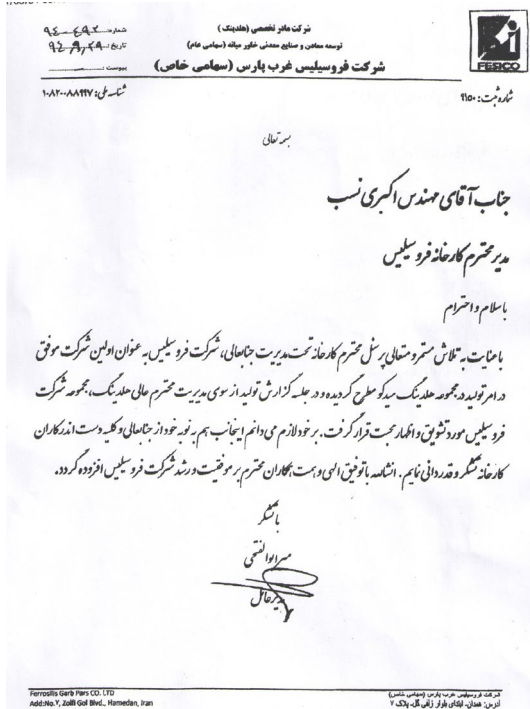 شرکت مادر تخصصی (هلدینگ)
توسعه معادن و صنایع معدنی خاور میانه (سهامی عام)
شرکت فروسیلیس غرب پارس (سهامی خاص)
FESICO
شماره:
تاریخ: ۹۴,۹,۲۹
پیوست:
شماره ثبت: ۹۱۵۰
شناسه ملی: ۱۰۸۲۰۰۸۸۹۹۷
بسمه تعالی
جناب آقای مهندس اکبری نسب
مدیر محترم کارخانه فروسیلیس
با سلام و احترام
با عنایت به تلاش مستمر و متعالی پرسنل محترم کارخانه تحت مدیریت جنابعالی، شرکت فروسیلیس به عنوان اولین شرکت موفق
در امر تولید در مجموعه هلدینگ میدکو مطرح گردیده و در جلسه گزارش تولید از سوی مدیریت محترم عالی هلدینگ، مجموعه شرکت
فروسیلیس مورد تشویق و اظهار محبت قرار گرفت. بر خود لازم می دانم اینجانب هم به نوبه خود از جنابعالی و کلیه دست اندرکاران
کارخانه تشکر و قدردانی نمایم. انشااله با توفیق الهی و همت همکاران محترم بر موفقیت و رشد شرکت فروسیلیس افزوده گردد.
با تشکر
میرابوالفتحی
مدیرعامل
Ferrosilis Garb Pars CO. LTD
Add:No.7, Zolfi Gol Blvd., Hamedan, Iran
شرکت فروسیلیس غرب پارس (سهامی خاص)
آدرس: همدان- ابتدای بلوار زلفی گل- پلاک ۷